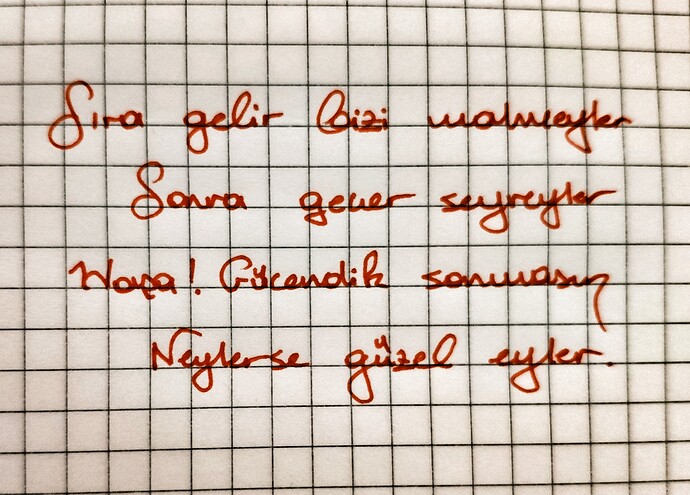 Sıra gelir bizi mahveyler
Sonra geçer seyreyler
Haşa! Gücendik sanmasın
Neylerse güzel eyler.